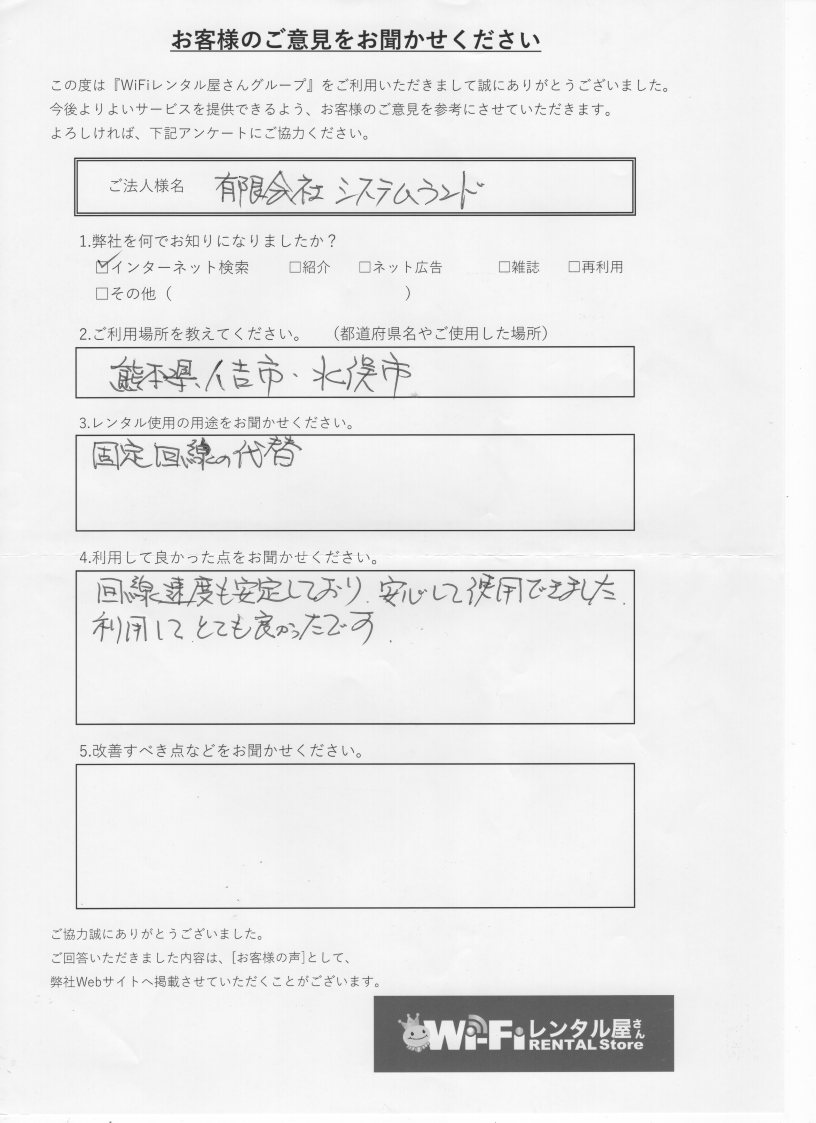 お客様のご意見をお聞かせください
この度は『WiFiレンタル屋さんグループ』をご利用いただきまして誠にありがとうございました。
今後よりよいサービスを提供できるよう、お客様のご意見を参考にさせていただきます。
よろしければ、下記アンケートにご協力ください。
ご法人様名 有限会社 システムランド
1.弊社を何でお知りになりましたか？
☑インターネット検索 □紹介 □ネット広告 □雑誌 □再利用
□その他（ ）
2.ご利用場所を教えてください。 （都道府県名やご使用した場所）
熊本県、人吉市・水俣市
3.レンタル使用の用途をお聞かせください。
固定回線の代替
4.利用して良かった点をお聞かせください。
回線速度も安定しており、安心して使用できました.
利用してとても良かったです.
5.改善すべき点などをお聞かせください。
ご協力誠にありがとうございました。
ご回答いただきました内容は、[お客様の声]として、
弊社Webサイトへ掲載させていただくことがございます。
Wi-Fi レンタル屋さん
RENTAL Store